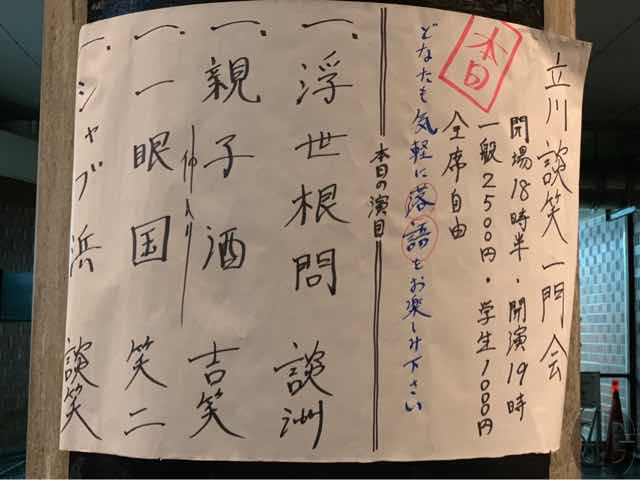 本日
立川談笑一門会
開場18時半・開演19時
一般2500円・学生1000円
全席自由
どなたも気軽に落語をお楽しみ下さい
本日の演目
一、浮世根問 談洲
一、親子酒 吉笑
仲入り
一、一眼国 笑二
一、シャブ浜 談笑